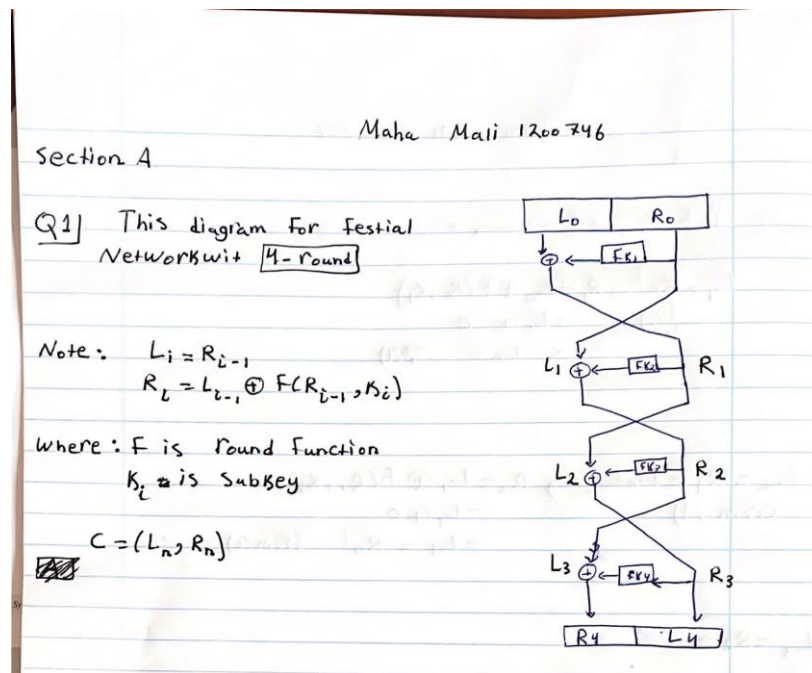 Maha Mali 1200746
Section A
Q1] This diagram for festial
Networkwit 4-round
Note: Lᵢ = Rᵢ₋₁
Rᵢ = Lᵢ₋₁ ⊕ F(Rᵢ₋₁, Kᵢ)
where: F is round function
Kᵢ is subkey
C = (Lₙ, Rₙ)
L₀ R₀
⊕ FK₁
L₁ ⊕ FK₂ R₁
L₂ ⊕ FK₃ R₂
L₃ ⊕ FK₄ R₃
R4 L4